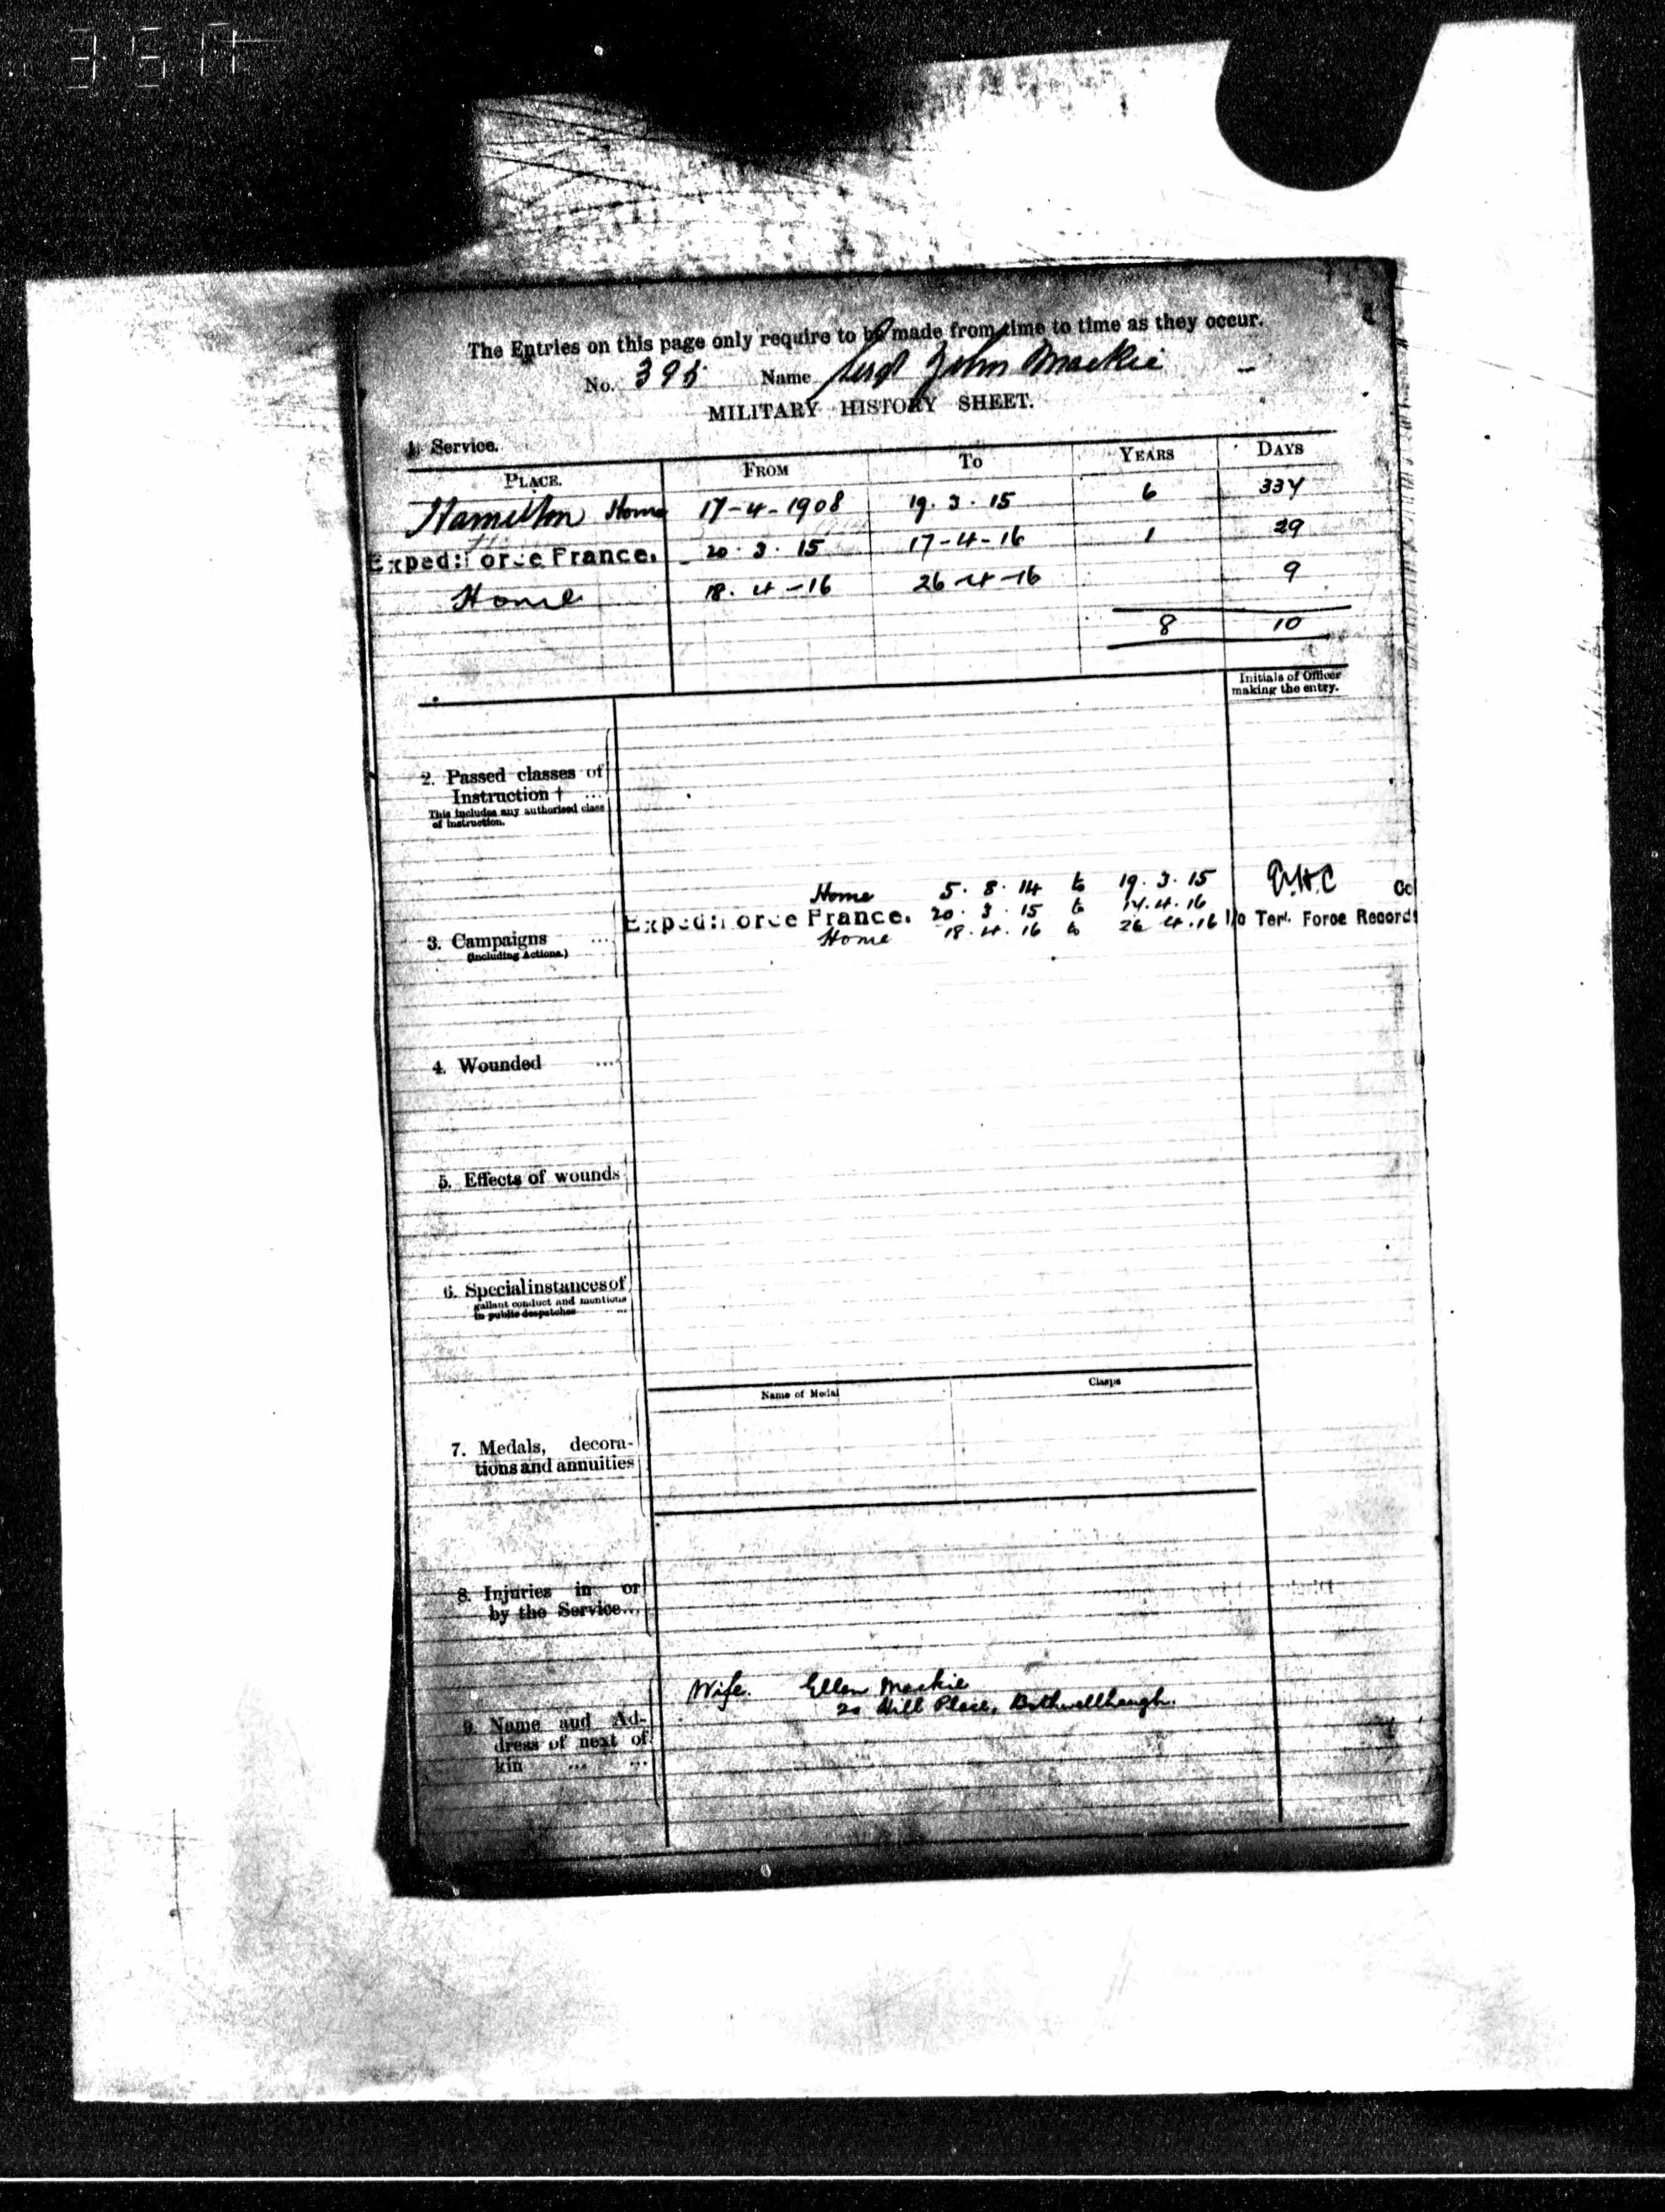 The Entries on this page only require to be made from time to time as they occur.
No. 395 Name Sergt John Mackie
MILITARY HISTORY SHEET.
1. Service.
PLACE. FROM TO YEARS DAYS
Hamilton Home 17-4-1908 19.3.15 6 337
Exped: Force France. 20.3.15 17-4-16 1 29
Home 18.4-16 26-4-16 9
8 10
Initials of Officer
making the entry.
2. Passed classes of
Instruction † ...
This includes any authorised class
of instruction.
Home 5.8.14 to 19.3.15
Exped: Force France. 20.3.15 to 17.4.16 I/c Terl. Force Records
Home 18.4.16 to 26.4.16
3. Campaigns ...
(including Actions.)
4. Wounded ...
5. Effects of wounds
6. Special instances of
gallant conduct and mentions
in public despatches ...
Name of Medal Clasps
7. Medals, decora-
tions and annuities
8. Injuries in or
by the Service...
Wife. Ellen Mackie
20 Hill Place, Bothwellhaugh.
9. Name and Ad-
dress of next of
kin ... ...